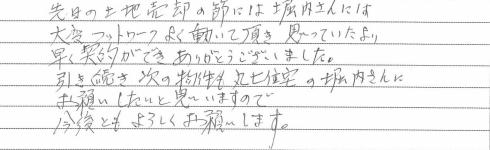 先日の土地売却の節には堀内さんには
大変フットワークよく動いて頂き思っていたより
早く契約ができありがとうございました。
引き続き次の物件も丸七住宅の堀内さんに
お願いしたいと思いますので
今後ともよろしくお願いします。